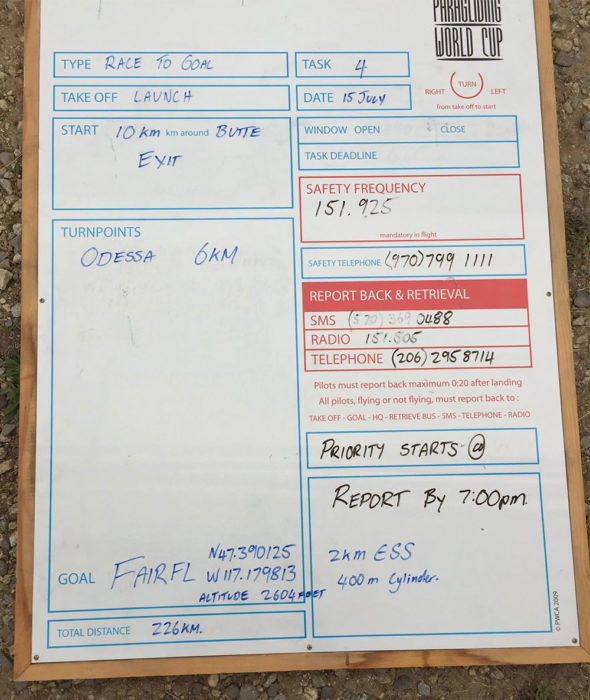 PARAGLIDING
WORLD CUP
TYPE RACE TO GOAL
TASK 4
RIGHT TURN LEFT
from take off to start
TAKE OFF LAUNCH
DATE 15 JULY
START 10 km km around BUTTE
EXIT
WINDOW OPEN CLOSE
TASK DEADLINE
SAFETY FREQUENCY
151.925
mandatory in flight
TURNPOINTS
ODESSA 6KM
SAFETY TELEPHONE (970)799 1111
REPORT BACK & RETRIEVAL
SMS 0488
RADIO 151.505
TELEPHONE (206) 295 8714
Pilots must report back maximum 0:20 after landing
All pilots, flying or not flying, must report back to :
TAKE OFF - GOAL - HQ - RETRIEVE BUS - SMS - TELEPHONE - RADIO
PRIORITY STARTS
REPORT By 7:00pm
2km ESS
400m Cylinder.
GOAL FAIRFL
N47.390125
W117.179813
ALTITUDE 2604 FEET
TOTAL DISTANCE 226KM.
© PWCA 2009